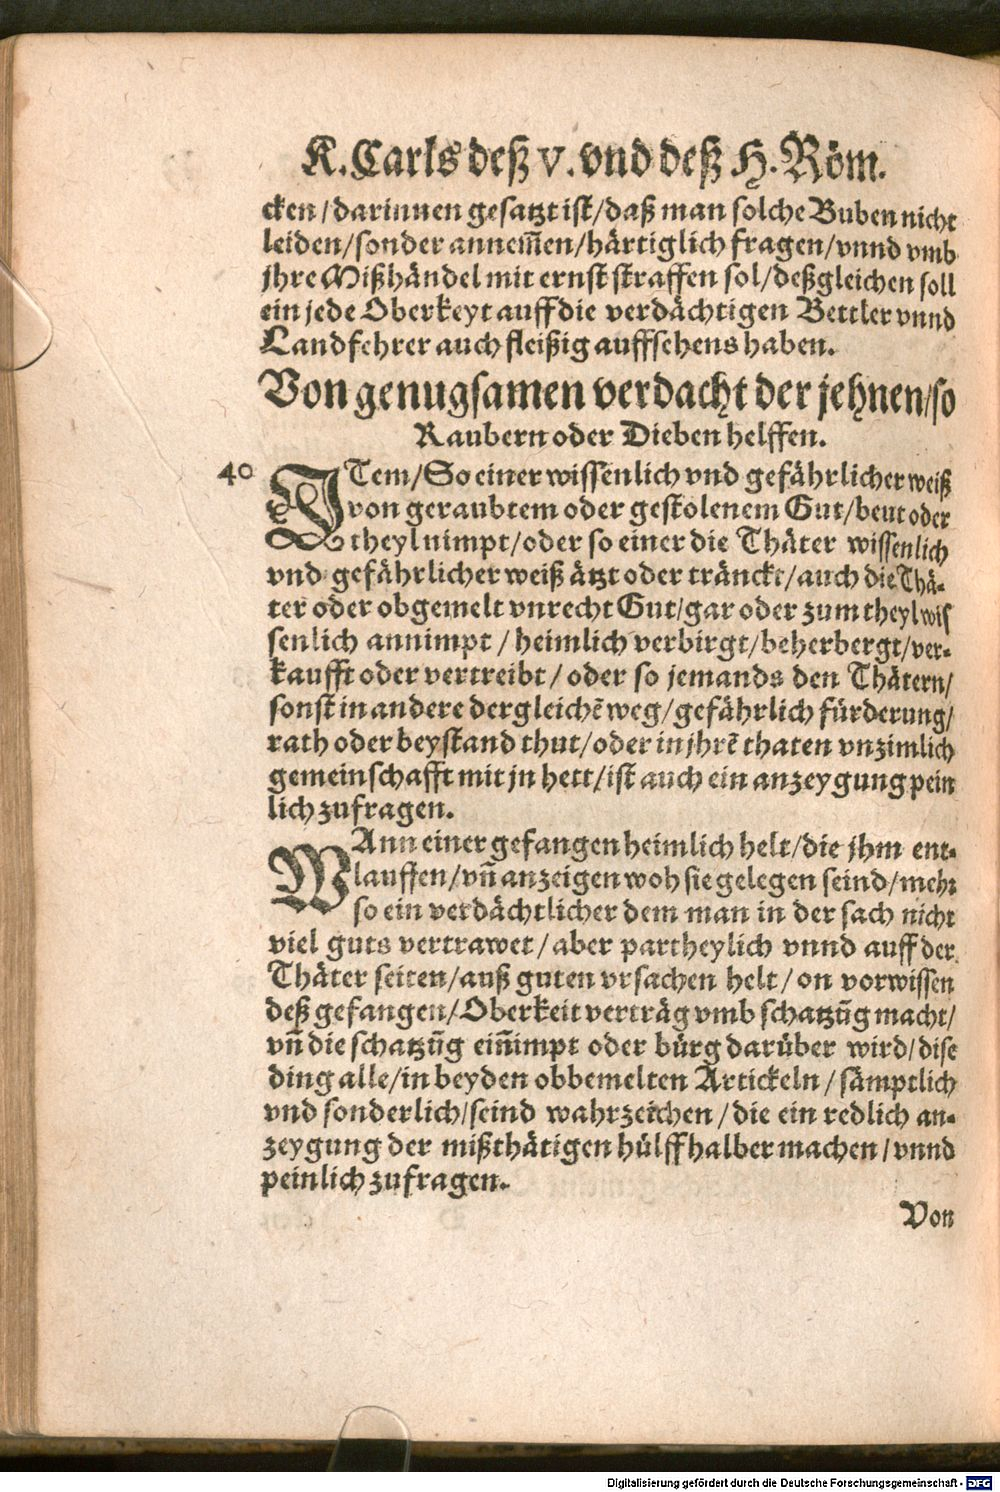 K. Carls deß V. vnd deß H. Röm.
cken/darinnen gesatzt ist/daß man solche Buben nicht
leiden/sonder annem̃en/härtiglich fragen/vnnd vmb
jhre Mißhändel mit ernst straffen sol/deßgleichen soll
ein jede Oberkeyt auff die verdächtigen Bettler vnnd
Landfehrer auch fleißig auffsehens haben.
Von genugsamen verdacht der jehnen/so
Raubern oder Dieben helffen.
40 ITem/So einer wissenlich vnd gefährlicher weiß
von geraubtem oder gestolenem Gut/beut oder
theyl nimpt/oder so einer die Thäter wissenlich
vnd gefährlicher weiß ätzt oder tränckt/auch die Thä-
ter oder obgemelt vnrecht Gut/gar oder zum theyl wis
senlich annimpt/heimlich verbirgt/beherbergt/ver-
kaufft oder vertreibt/oder so jemands den Thätern/
sonst in andere dergleichẽ weg/gefährlich fürderung/
rath oder beystand thut/oder in jhrẽ thaten vnzimlich
gemeinschafft mit jn hett/ist auch ein anzeygung pein
lich zufragen.
WAnn einer gefangen heimlich helt/die jhm ent-
lauffen/vñ anzeigen woh sie gelegen seind/mehr
so ein verdächtlicher dem man in der sach nicht
viel guts vertrawet/aber partheylich vnnd auff der
Thäter seiten/auß guten vrsachen helt/on vorwissen
deß gefangen/Oberkeit verträg vmb schatzũg macht/
vñ die schatzũg eiñimpt oder bürg darüber wird/dise
ding alle/in beyden obbemelten Artickeln/sämptlich
vnd sonderlich/seind wahrzeichen/die ein redlich an-
zeygung der mißthätigen hülff halber machen/vnnd
peinlich zufragen.
Von
Digitalisierung gefördert durch die Deutsche Forschungsgemeinschaft - DFG